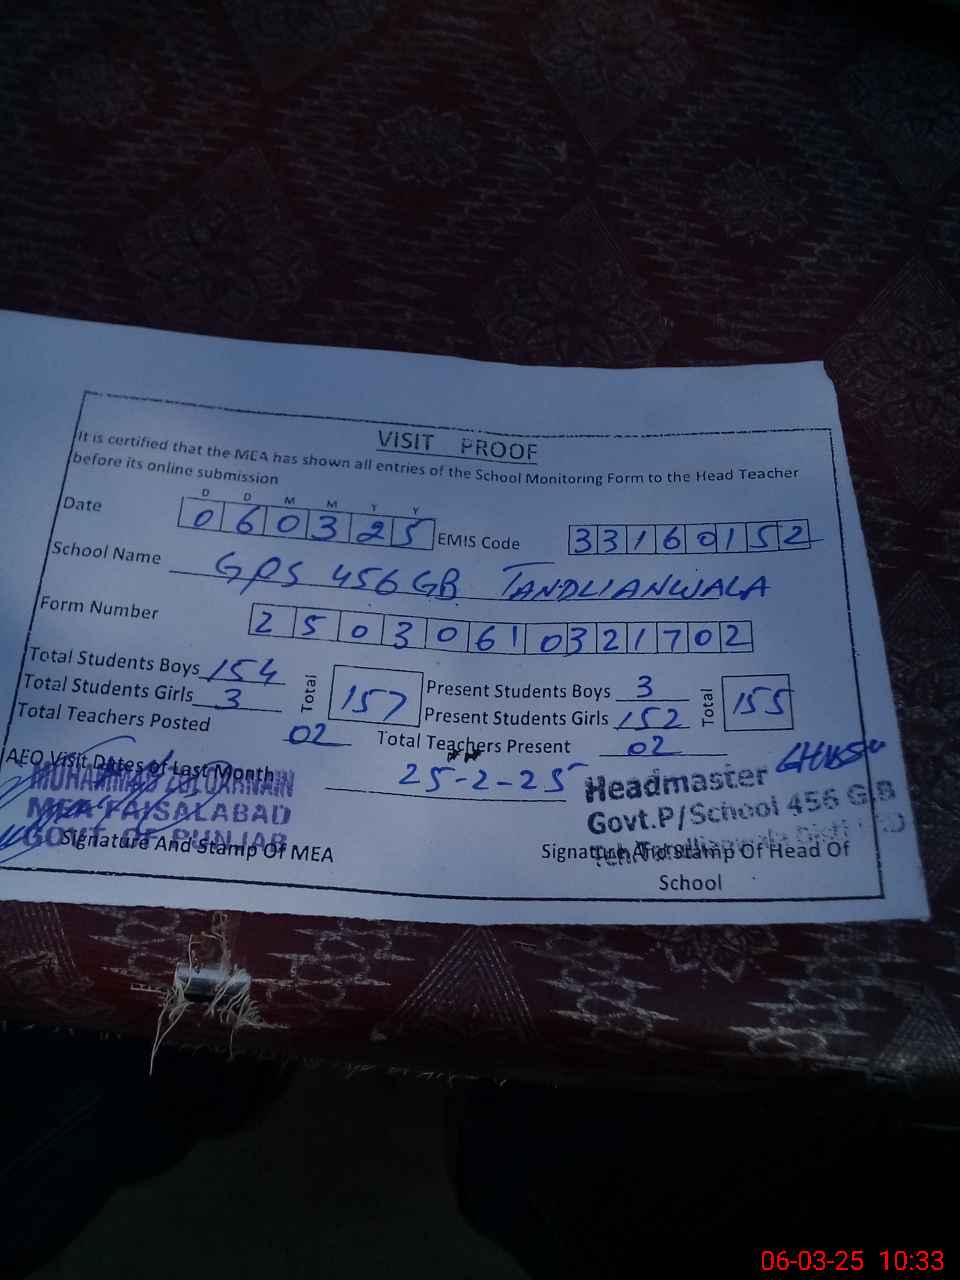 VISIT PROOF
It is certified that the MEA has shown all entries of the School Monitoring Form to the Head Teacher
before its online submission
D D M M Y Y
Date 060325 EMIS Code 33160152
School Name GPS 456 GB TANDLIANWALA
Form Number 25030610321702
Total Students Boys 154 Total 157 Present Students Boys 3 Total 155
Total Students Girls 3 Present Students Girls 152
Total Teachers Posted 02 Total Teachers Present 02
AEO Visit Dates of Last Month 25-2-25
MUHAMMAD ZULQARNAIN
MEA FAISALABAD
GOVT. OF PUNJAB
Signature And Stamp Of MEA
Headmaster
Govt.P/School 456 GB
Signature And Stamp Of Head Of
School
06-03-25 10:33